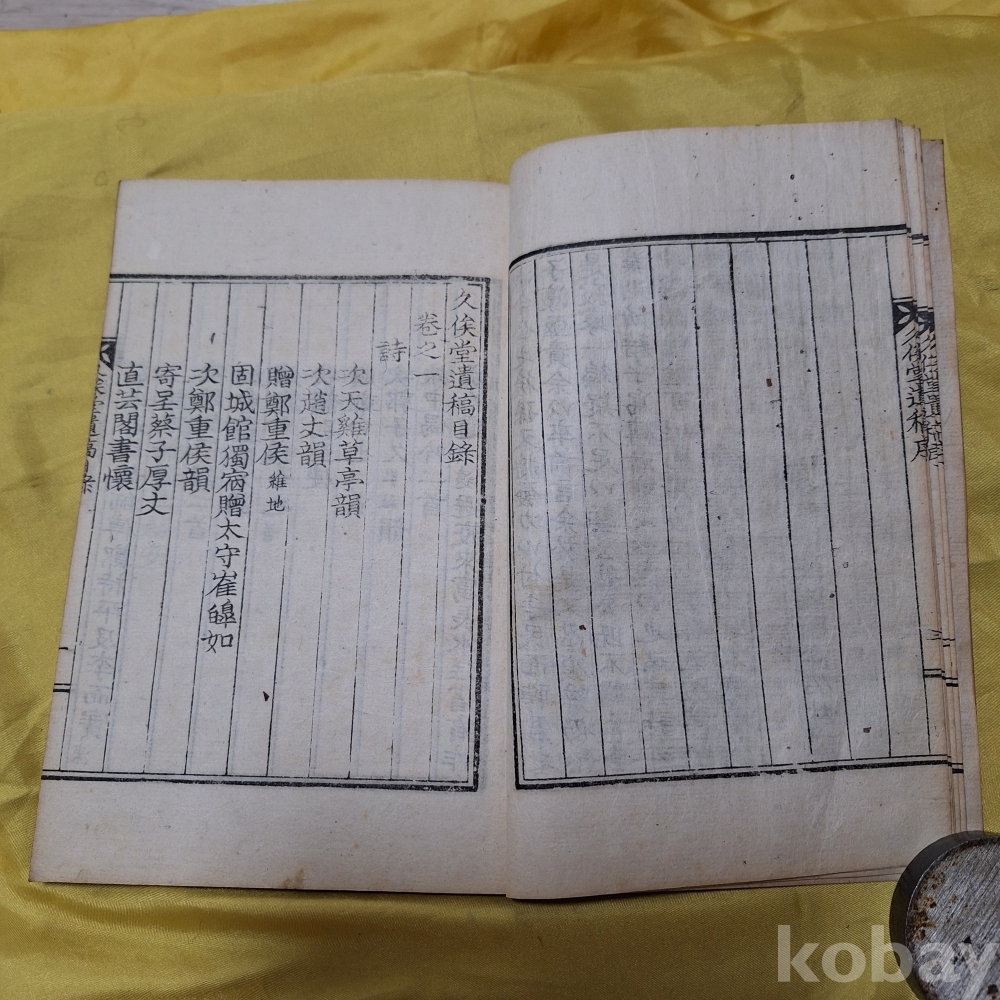 久俟堂遺稿序
久俟堂遺稿目錄
卷之一
詩
次天雞草亭韻
次趙丈韻
贈鄭重侯 維地
固城館獨宿贈太守崔皥如
次鄭重侯韻
寄呈蔡子厚丈
直芸閣書懷
kobay